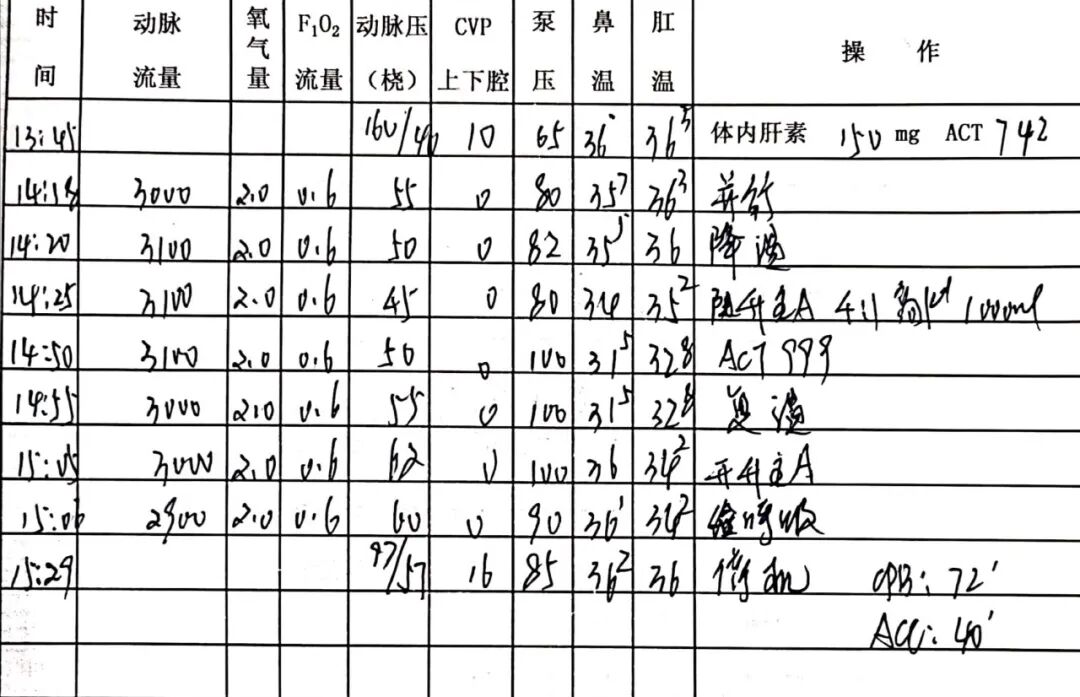 时间 动脉流量 氧气量 F₁O₂流量 动脉压(桡) CVP上下腔 泵压 鼻温 肛温 操作
13:45 160/46 10 65 36 36⁵ 体内肝素 150 mg ACT 742
14:18 3000 2.0 0.6 55 0 80 35⁷ 36³ 并行
14:20 3100 2.0 0.6 50 0 82 35⁵ 36 降温
14:25 3100 2.0 0.6 45 0 80 34 35² 阻升主A 4:1 1000ml
14:50 3100 2.0 0.6 50 0 100 31⁵ 32⁸ ACT 999
14:55 3000 2.0 0.6 55 0 100 31⁵ 32⁸ 复温
15:05 3000 2.0 0.6 62 0 100 36 34² 开升主A
15:06 2900 2.0 0.6 60 0 90 36¹ 34² 呼吸
15:29 97/57 16 85 36² 36 停机 CPB: 72′
ACC: 40′